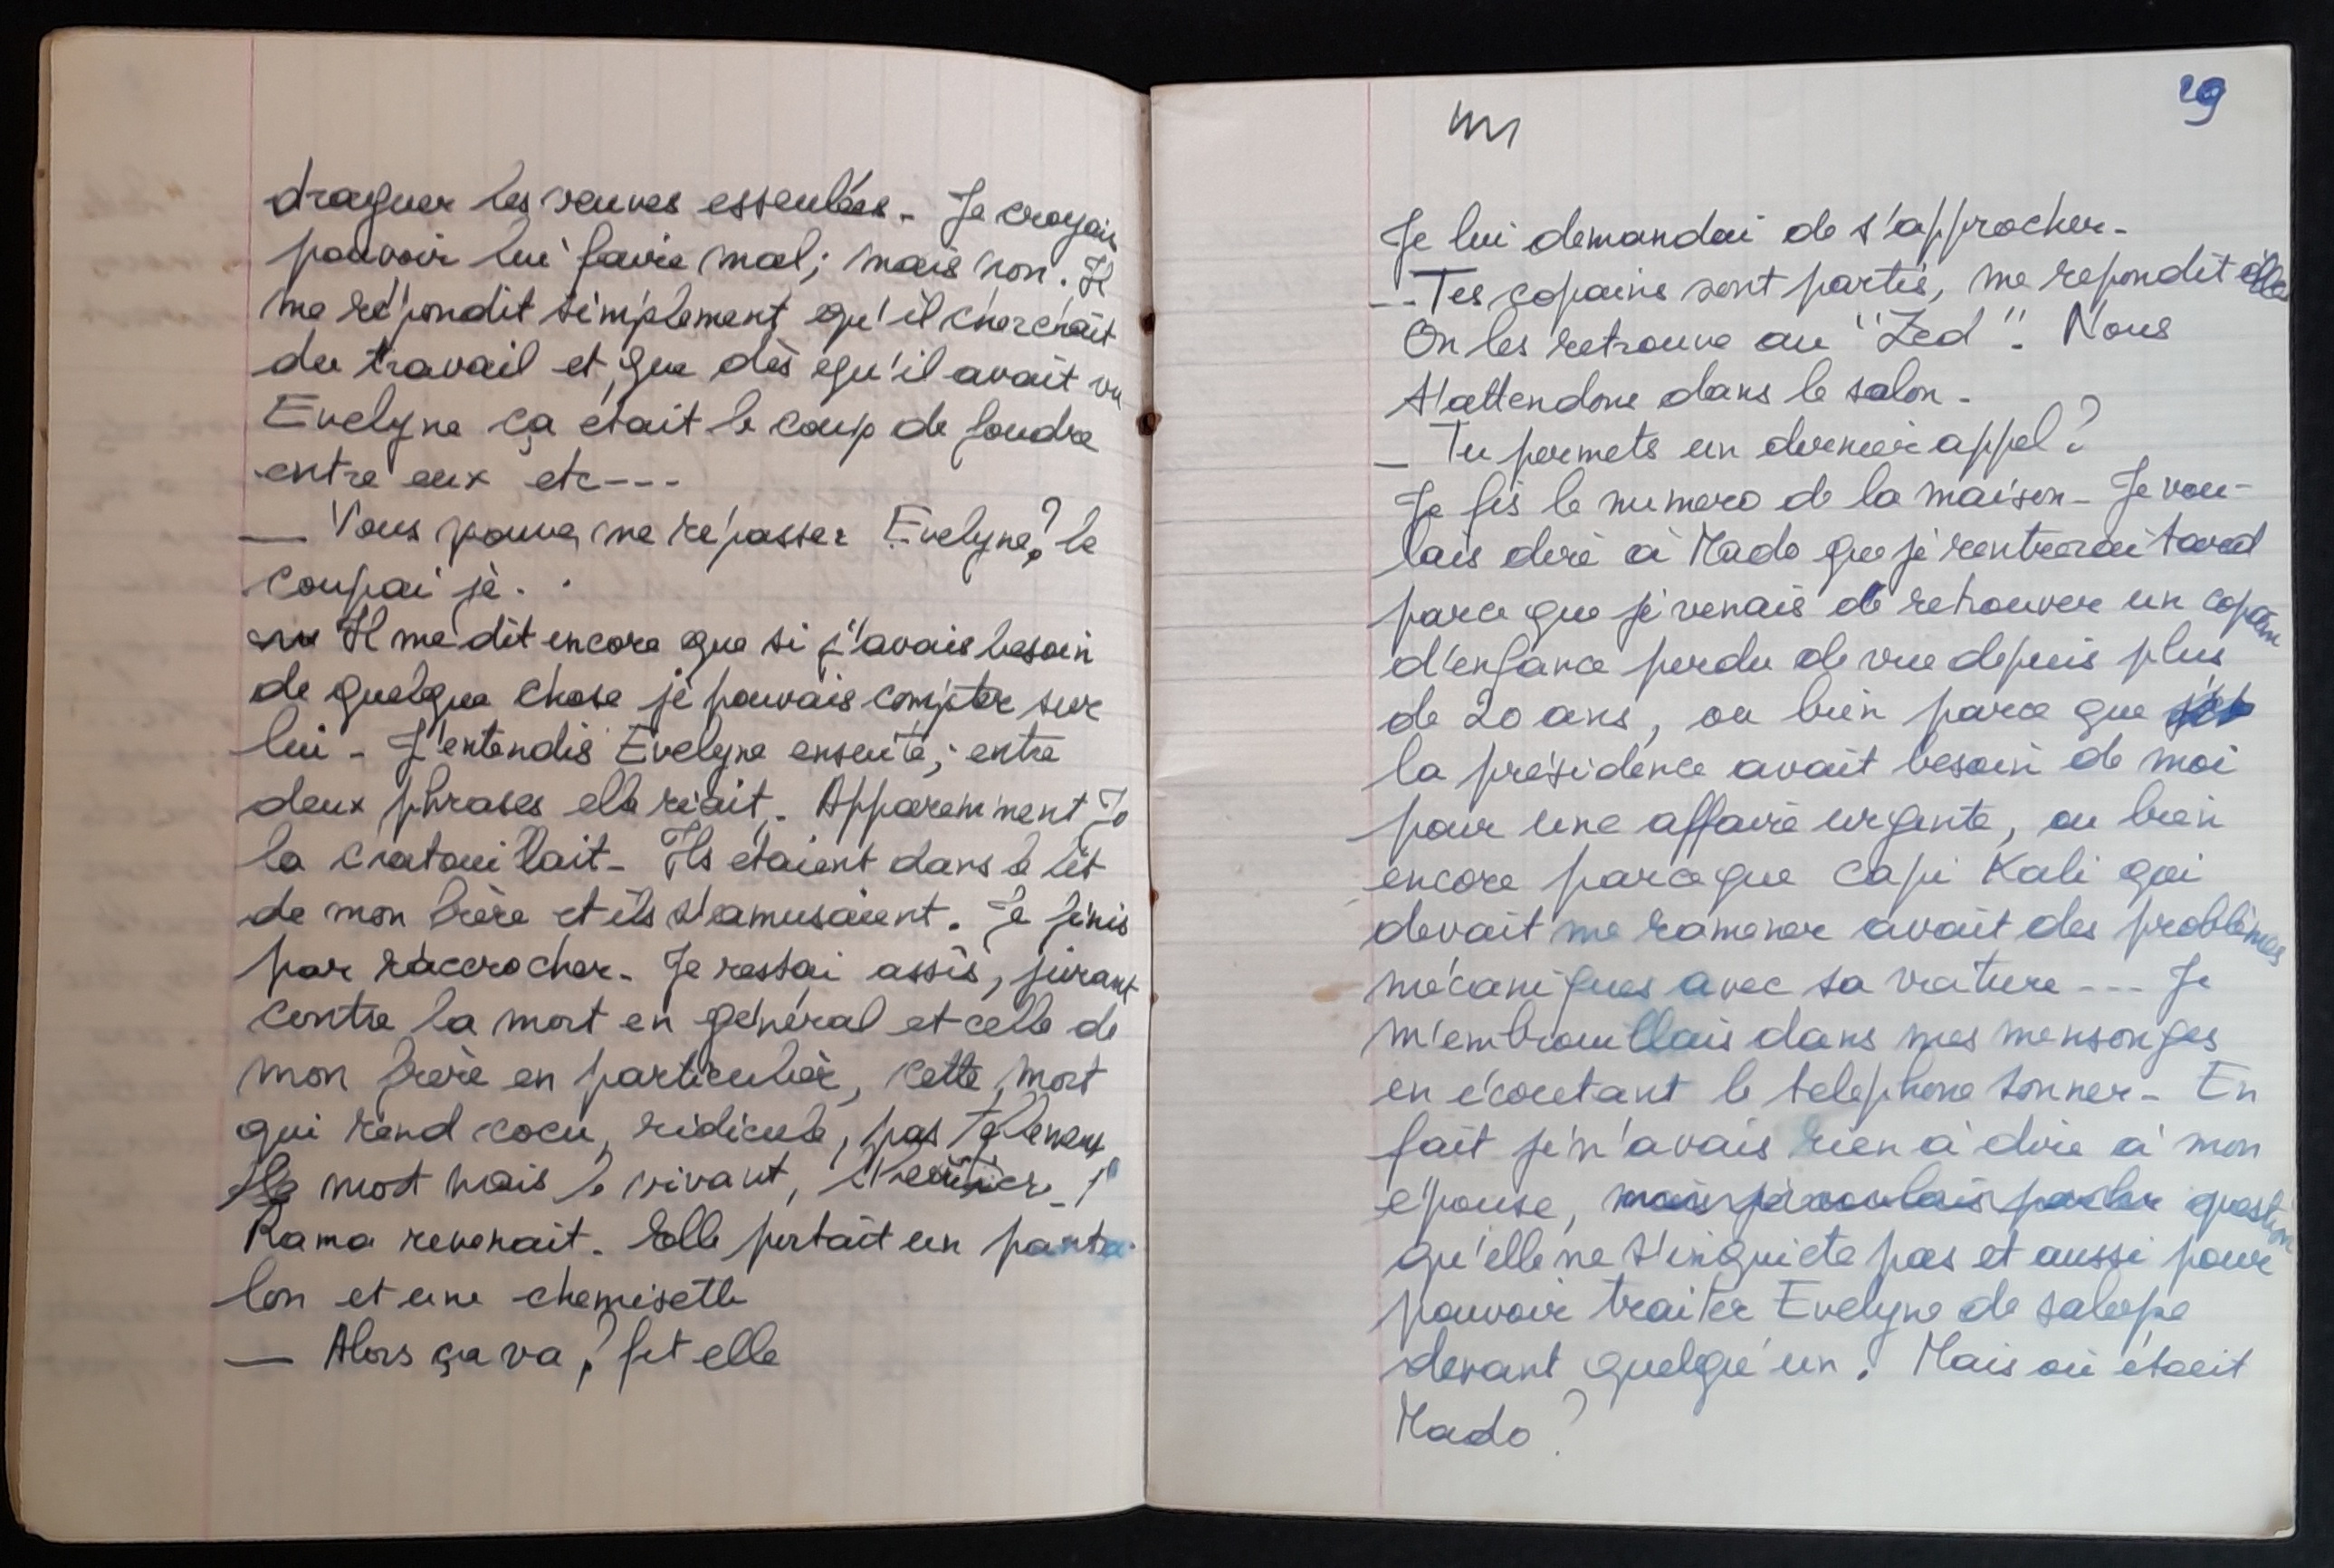 draguer les veuves esseulées. Je croyais
pouvoir lui faire mal; mais non. Il
me répondit simplement qu'il cherchait
du travail et que dès qu'il avait vu
Evelyne ça était le coup de foudre
entre eux etc---
— Vous pouvez me repasser Evelyne? le
coupai je.
Il me dit encore que si j'avais besoin
de quelque chose je pouvais compter sur
lui - J'entendis Evelyne ensuite; entre
deux phrases elle riait. Apparemment Jo
la chatouillait - Ils étaient dans le lit
de mon frère et ils s'amusaient. Je finis
par raccrocher - Je restai assis, jurant
contre la mort en général et celle de
mon frère en particulier, cette mort
qui rend cocu, ridicule, pas tellement
le mort mais le vivant,
Rama revenait. Elle portait un panta-
lon et une chemisette
— Alors ça va? fit elle
29
Je lui demandai de s'approcher -
-- Tes copains sont partis, me repondit elle
On les retrouve au "Zed". Nous
t'attendons dans le salon -
— Tu permets un dernier appel?
Je fis le numero de la maison - Je vou-
lais dire à Mado que je rentrerai tard
parce que je venais de retrouver un copain
d'enfance perdu de vue depuis plus
de 20 ans, ou bien parce que
la présidence avait besoin de moi
pour une affaire urgente, ou bien
encore parce que Capi Kali qui
devait me ramener avait des problèmes
mécaniques avec sa voiture --- Je
m'embrouillais dans mes mensonges
en écoutant le telephone sonner - En
fait je n'avais rien à dire à mon
epouse, mais je voulais parler question
qu'elle ne s'inquiete pas et aussi pour
pouvoir traiter Evelyne de salope
devant quelqu'un. Mais où était
Mado?